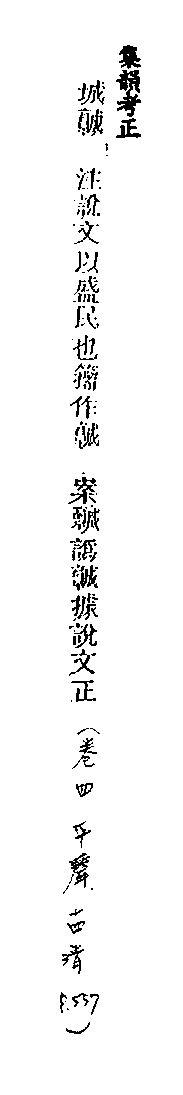 集韻考正
城𩫨 注說文以盛民也籒作𩫨 案譌𩫨據說文正 (卷四 平聲 十四清 P.537)